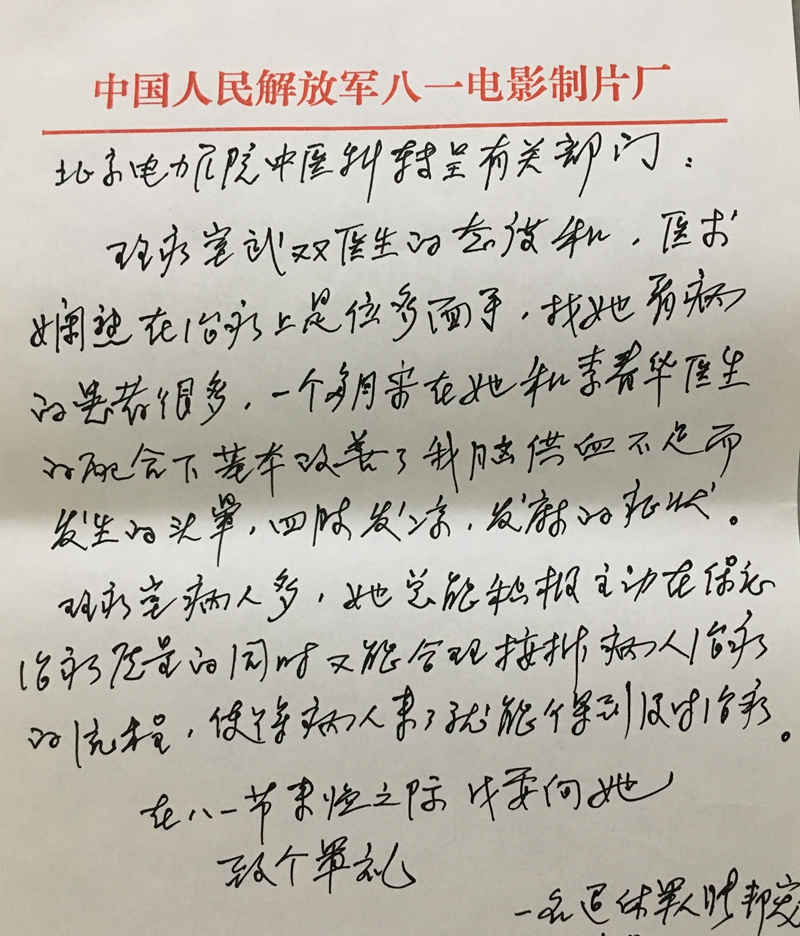 中国人民解放军八一电影制片厂
北京电力医院中医科转呈有关部门：
理疗室武双医生的态度和，医术
娴熟在治疗上是位多面手，找她看病
的患者很多，一个多月来在她和李春华医生
的配合下基本改善了我脑供血不足而
发生的头晕，四肢发凉，发麻的症状。
理疗室病人多，她总能积极主动在保证
治疗质量的同时又能合理安排病人治疗
的流程，使每病人来了就能得到及时治疗。
在八一节来临之际我要向她
致个军礼
一名退休军人